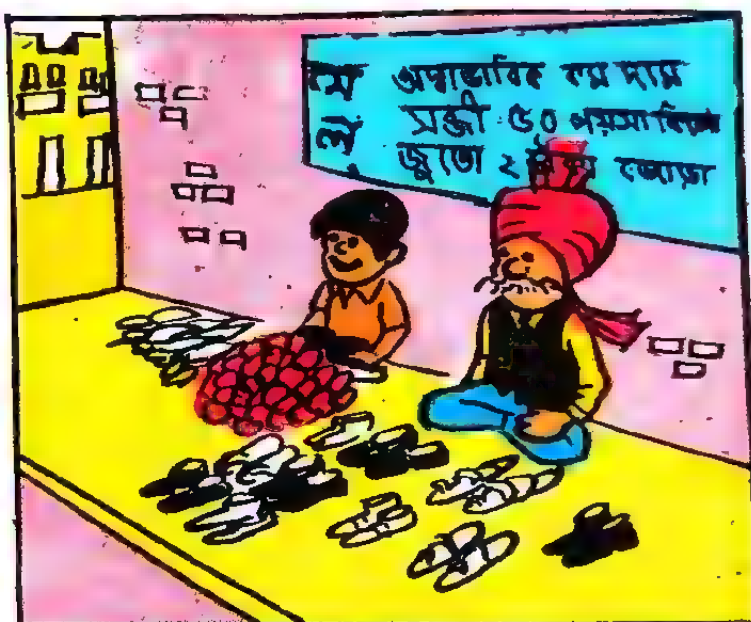 সেল
অস্বাভাবিক কম দাম
সব্জী ৫০ পয়সা কিলো
জুতো ২ টাকা জোড়া